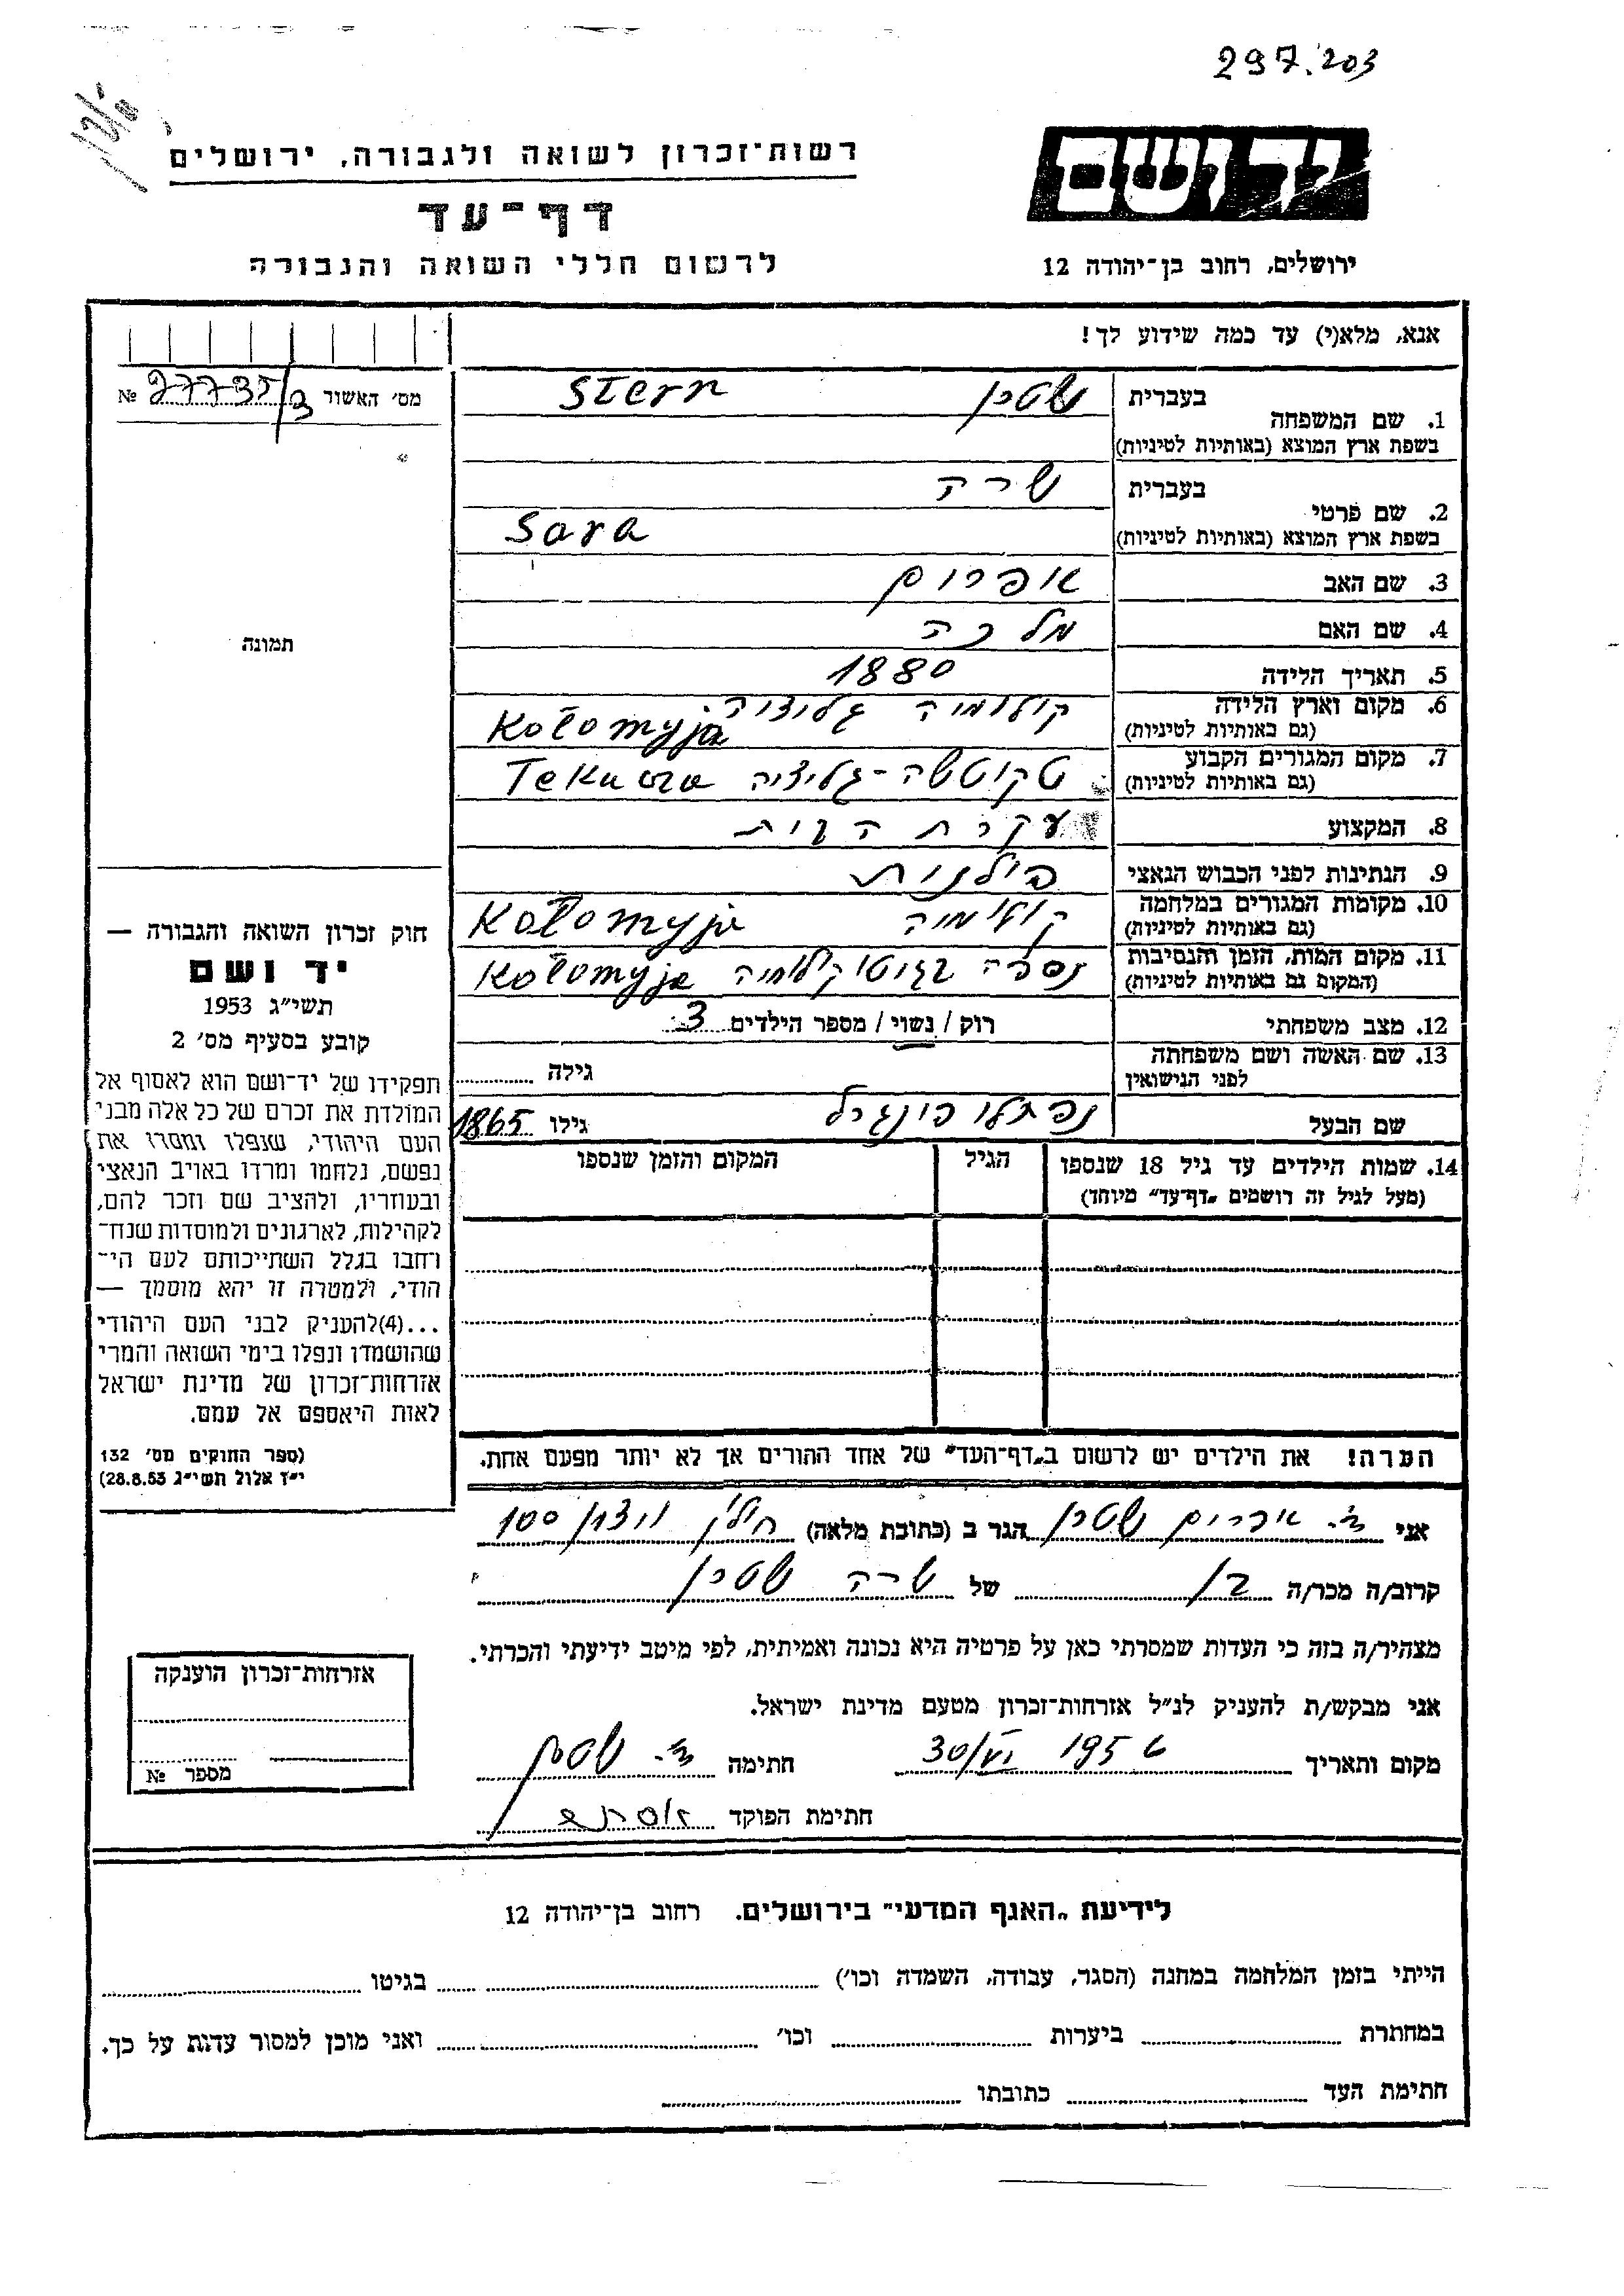 297.203
יד ושם
רשות־זכרון לשואה ולגבורה, ירושלים
דף־עד
ירושלים, רחוב בן־יהודה 12
לרשום חללי השואה והגבורה
אנא, מלא(י) עד כמה שידוע לך!
מס׳ האשור 27735/3 №
1. שם המשפחה בעברית שטרן Stern
בשפת ארץ המוצא (באותיות לטיניות)
2. שם פרטי בעברית שרה
בשפת ארץ המוצא (באותיות לטיניות) Sara
3. שם האב אפרים
4. שם האם מלכה
תמונה
5. תאריך הלידה 1880
6. מקום וארץ הלידה קולומיה גליציה
(גם באותיות לטיניות) Kołomyja
7. מקום המגורים הקבוע טקוטשה-גליציה
(גם באותיות לטיניות)
8. המקצוע עקרת הבית
9. הנתינות לפני הכבוש הנאצי פולנית
10. מקומות המגורים במלחמה קולומיה Kołomyja
(גם באותיות לטיניות)
11. מקום המות, הזמן והנסיבות נספה בגיטו קולומיה Kołomyja
(המקום גם באותיות לטיניות)
12. מצב משפחתי רוק / נשוי / מספר הילדים 3
13. שם האשה ושם משפחתה
לפני הנישואין גילה
שם הבעל נפתלי פינגיל גילו 1865
14. שמות הילדים עד גיל 18 שנספו הגיל המקום והזמן שנספו
(מעל לגיל זה רושמים „דף־עד״ מיוחד)
הערה! את הילדים יש לרשום ב„דף־העד״ של אחד ההורים אך לא יותר מפעם אחת.
חוק זכרון השואה והגבורה —
יד ושם
תשי״ג 1953
קובע בסעיף מס׳ 2
תפקידו של יד־ושם הוא לאסוף אל
המולדת את זכרם של כל אלה מבני
העם היהודי, שנפלו ומסרו את
נפשם, נלחמו ומרדו באויב הנאצי
ובעוזריו, ולהציב שם וזכר להם,
לקהילות, לארגונים ולמוסדות שנח־
רחבו בגלל השתייכותם לעם הי־
הודי, ולמטרה זו יהא מוסמך —
...(4)להעניק לבני העם היהודי
שהושמדו ונפלו בימי השואה והמרי
אזרחות־זכרון של מדינת ישראל
לאות היאספם אל עמם.
(ספר החוקים מס׳ 132
י״ד אלול תשי״ג 28.8.53)
אני א. אפרים שטרן הגר ב (כתובת מלאה) חולון 100
קרוב/ה מכר/ה בן של שרה שטרן
מצהיר/ה בזה כי העדות שמסרתי כאן על פרטיה היא נכונה ואמיתית, לפי מיטב ידיעתי והכרתי.
אני מבקש/ת להעניק לנ״ל אזרחות־זכרון מטעם מדינת ישראל.
מקום ותאריך 30/VI 1956 חתימה א. שטרן
חתימת הפוקד
אזרחות־זכרון הוענקה
מספר №
לידיעת „האגף המדעי״ בירושלים. רחוב בן־יהודה 12
הייתי בזמן המלחמה במחנה (הסגר, עבודה, השמדה וכו׳) בגיטו
במחתרת ביערות וכו׳ ואני מוכן למסור עדות על כך.
חתימת העד כתובתו